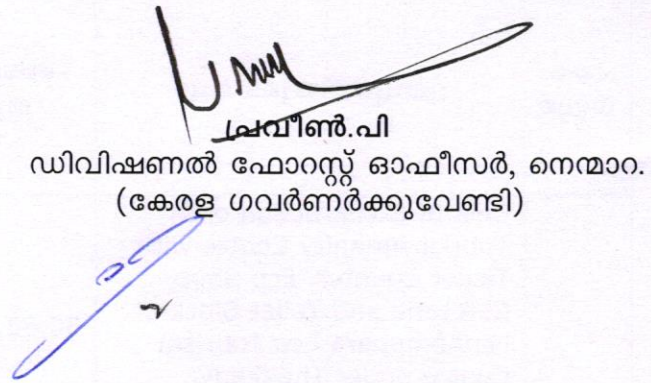 പ്രവീൺ.പി
ഡിവിഷണൽ ഫോറസ്റ്റ് ഓഫീസർ, നെന്മാറ.
(കേരള ഗവർണർക്കുവേണ്ടി)